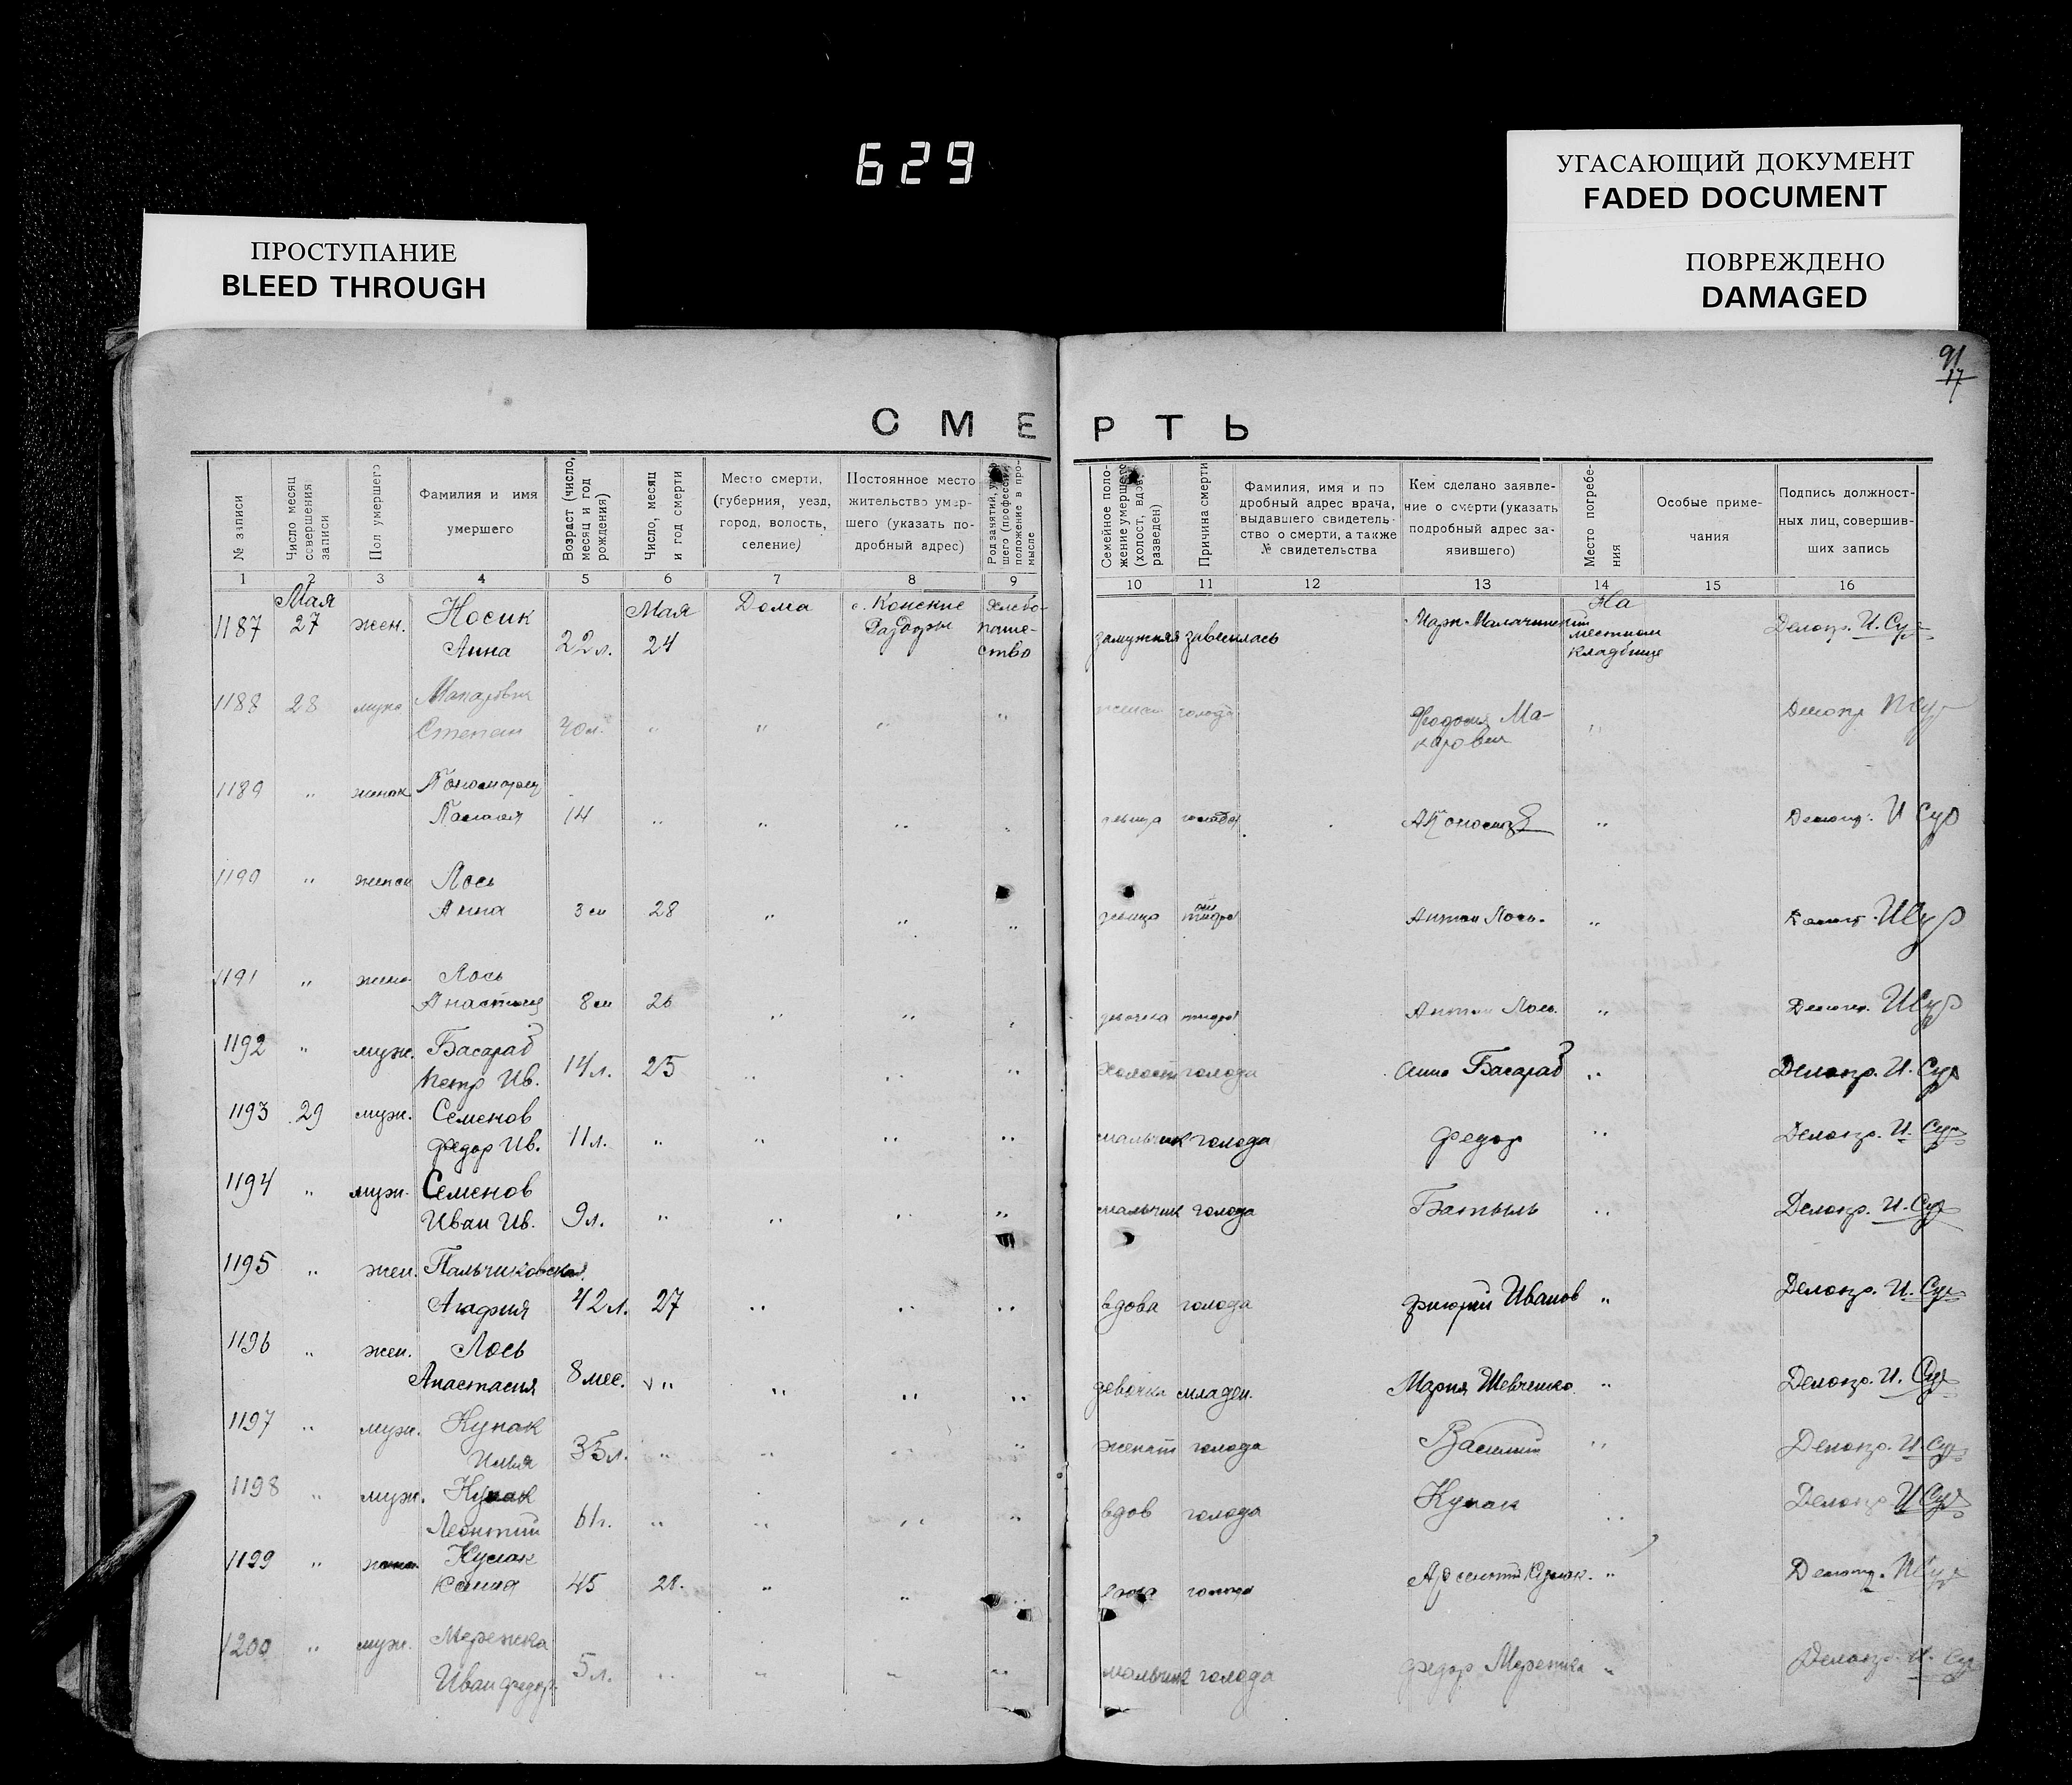 629
УГАСАЮЩИЙ ДОКУМЕНТ
FADED DOCUMENT
ПОВРЕЖДЕНО
DAMAGED
ПРОСТУПАНИЕ
BLEED THROUGH
91
17
СМЕРТЬ
№ записи
Число месяц совершения записи
Пол умершего
Фамилия и имя умершего
Возраст (число, месяц и год рождения)
Число, месяц и год смерти
Место смерти, (губерния, уезд, город, волость, селение)
Постоянное место жительство умершего (указать подробный адрес)
Род занятий, умершего (профессия, положение в промысле
Семейное положение умершего (холост, вдов, разведен)
Причина смерти
Фамилия, имя и подробный адрес врача, выдавшего свидетельство о смерти, а также № свидетельства
Кем сделано заявление о смерти (указать подробный адрес заявившего)
Место погребения
Особые примечания
Подпись должностных лиц, совершивших запись
1 2 3 4 5 6 7 8 9 10 11 12 13 14 15 16
1187 Мая 27 жен. Носик Анна 22 л. Мая 24 Дома с. Конские Раздоры Хлебопашество замужняя На местном кладбище Делопр. И. Сур
1188 28 муж Степан 40 л. " " " " голода Федосия Макарович " Делопр
1189 " женск 14 " " " " девица голода "
1190 " женск Лось Анна 3 м 28 " " " девица Антон Лось. "
1191 " женс Лось Анастасия 8 м 26 " " " девочка Антон Лось. " Делопр.
1192 " муж. Басараб Петр Ив. 14 л. 25 " " " холост голода Анна Басараб " Делопр. И. Сур
1193 29 муж. Семенов Федор Ив. 11 л. " " " " мальчик голода Федор " Делопр. И. Сур
1194 " муж. Семенов Иван Ив. 9 л. " " " " мальчик голода Батыль " Делопр. И. Сур
1195 " жен. Пальчиковская Агафия 42 л. 27 " " " вдова голода Григорий Иванов " Делопр. И. Сур
1196 " жен. Лось Анастасия 8 мес. " " " " девочка младен. Мария Шевченко " Делопр. И. Сур
1197 " муж. Кулак Илья 35 л. " " " " женат голода Василий " Делопр. И. Сур
1198 " муж. Кулак Леонтий 61 г. " " " " вдов голода Кулак " Делопр. И. Сур
1199 " 45 " " голода "
1200 " муж. Мережка Иван Федор. 5 л. " " " " мальчик голода Федор Мережка " Делопр. И. Сур